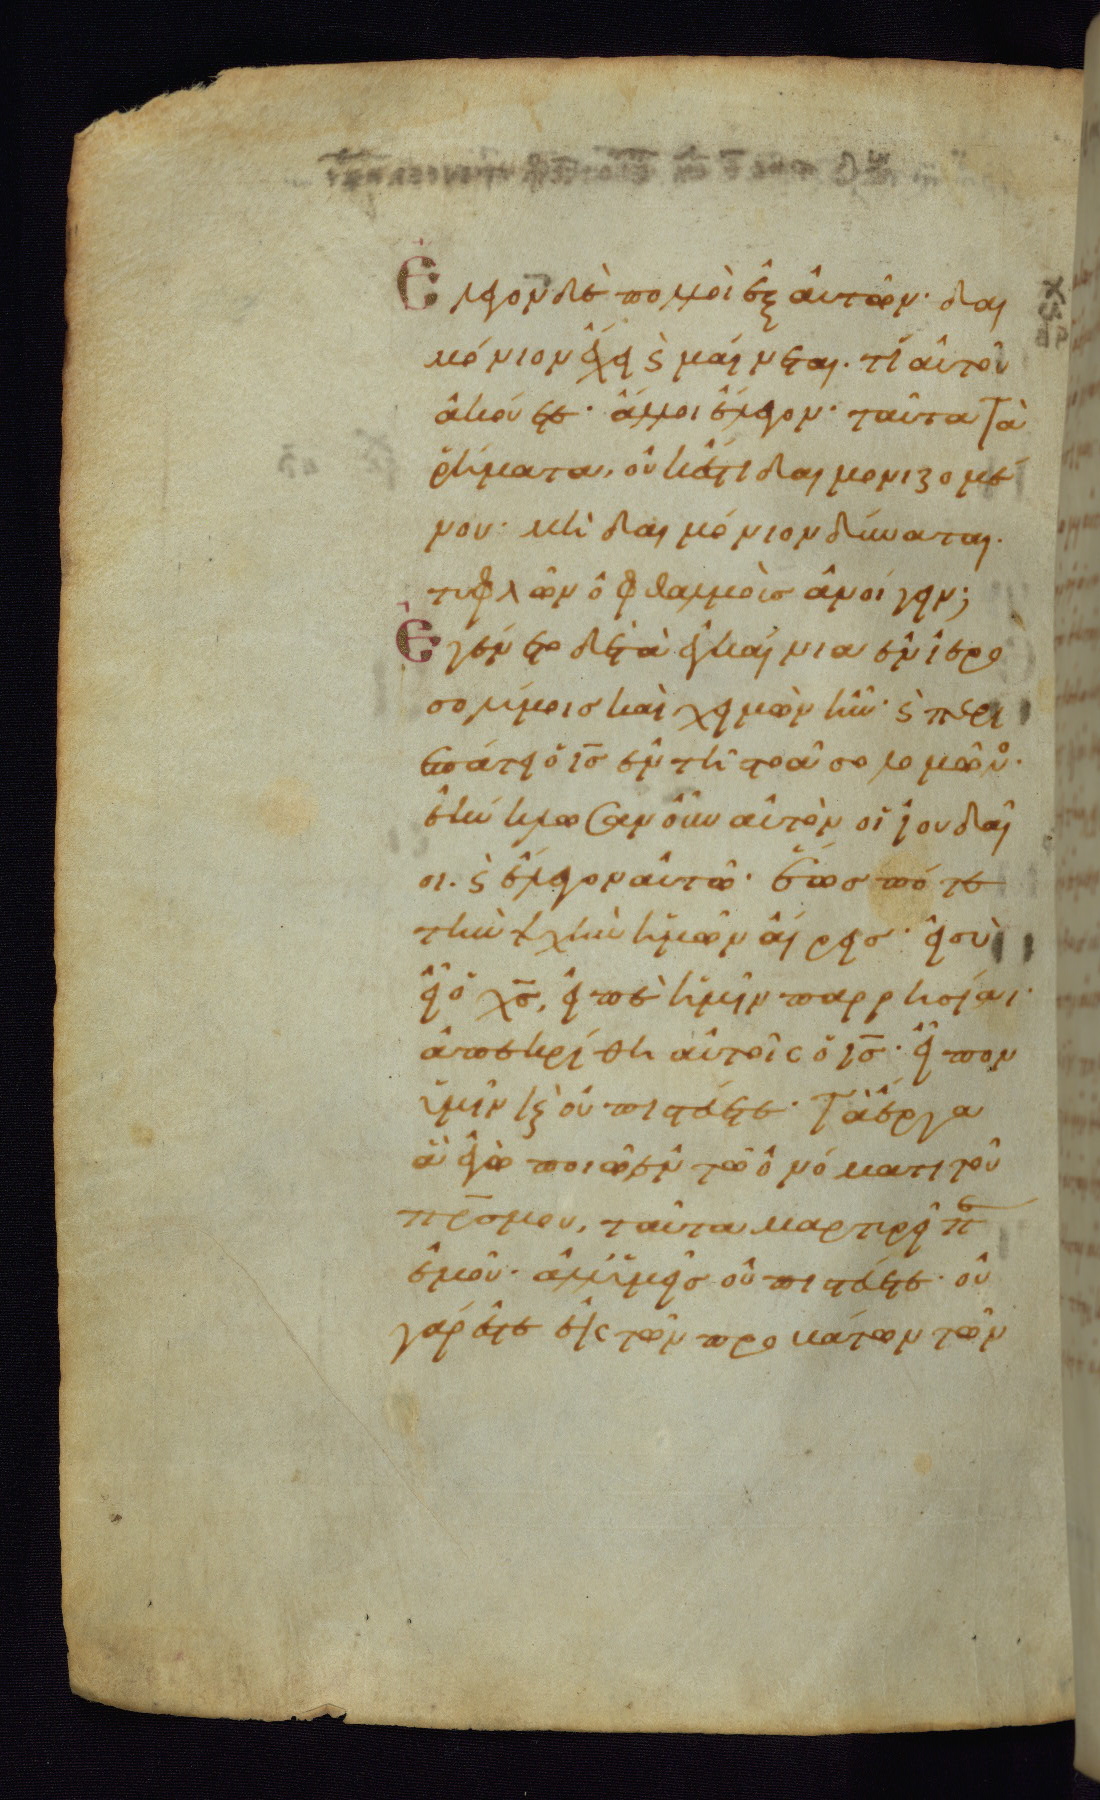 Ἔλεγον δὲ πολλοὶ ἐξ αὐτῶν· δαι
μόνιον ἔχει ϛ μαίνεται. τί αὐτοῦ
ἀκούετε· ἄλλοι ἔλεγον· ταῦτα τὰ
ῥήματα, οὐκ ἔστι δαιμονιζομέ
νου· μὴ δαιμόνιον δύναται.
τυφλῶν ὀφθαλμοὺσ ἀνοίγειν;
Ἐγένετο δὲ τὰ ἐγκαίνια ἐν ἱερο
σολύμοισ καὶ χειμὼν ἦν· ϛ περι
επάτει ὁ ις ἐν τῆ στοᾶ σολομῶν.
ἐκύκλωσαν οὖν αὐτὸν οἱ ἰουδαῖ
οι. ϛ ἔλεγον αὐτῶ· ἕωσ πότε
τὴν ψχὴν ἡμῶν αἴρεισ· εἰ σὺ
εἶ ὁ χς, εἰπὲ ἡμῖν παρρησίαι·
ἀπεκρίθη αὐτοῖς ὁ ις· εἶπον
ὑμῖν ϛ οὐ πιστεύετε· τὰ ἔργα
ἃ ἐγὼ ποιῶ ἐν τῶ ὀνόματι τοῦ
πρσ μου, ταῦτα μαρτυρεῖ π
ἐμοῦ· ἀλλ' ὑμεῖσ οὐ πιστεύετε· οὐ
γάρ ἐστε ἐκ τῶν προβάτων τῶν